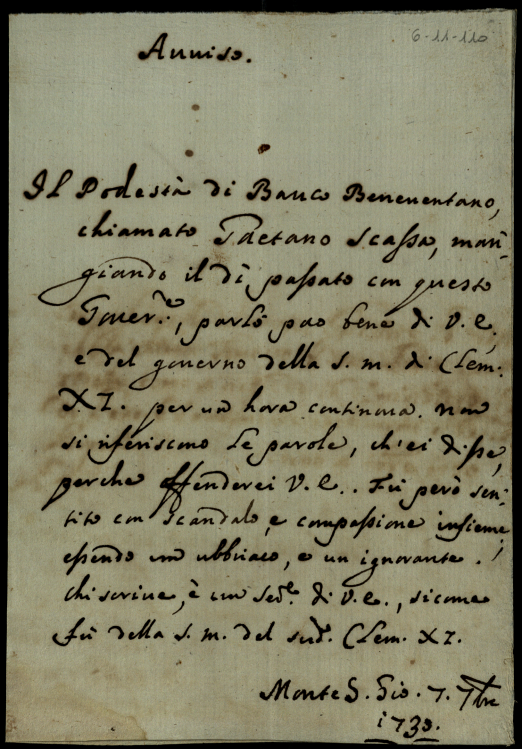 6-11-110
Avviso.
Il Podestà di Bauco Beneventano,
chiamato Gaetano Scassa, man-
giando il dì passato con questo
Gover.re, parlò poo bene di V. E.,
e del governo della s. m. di Clem.
XI. per un hora continova. Non
si riferiscono le parole, ch'ei disse,
perche offenderei V. E.. Fù però sen-
tito con scandalo, e compassione insieme,
essendo un ubbriaco, e un ignorante.
Chi scrive, è un Sed.le di V. E., sicome
fù della s. m. del sud.o Clem. XI.
Monte S. Gio. 7. 7bre
1730.